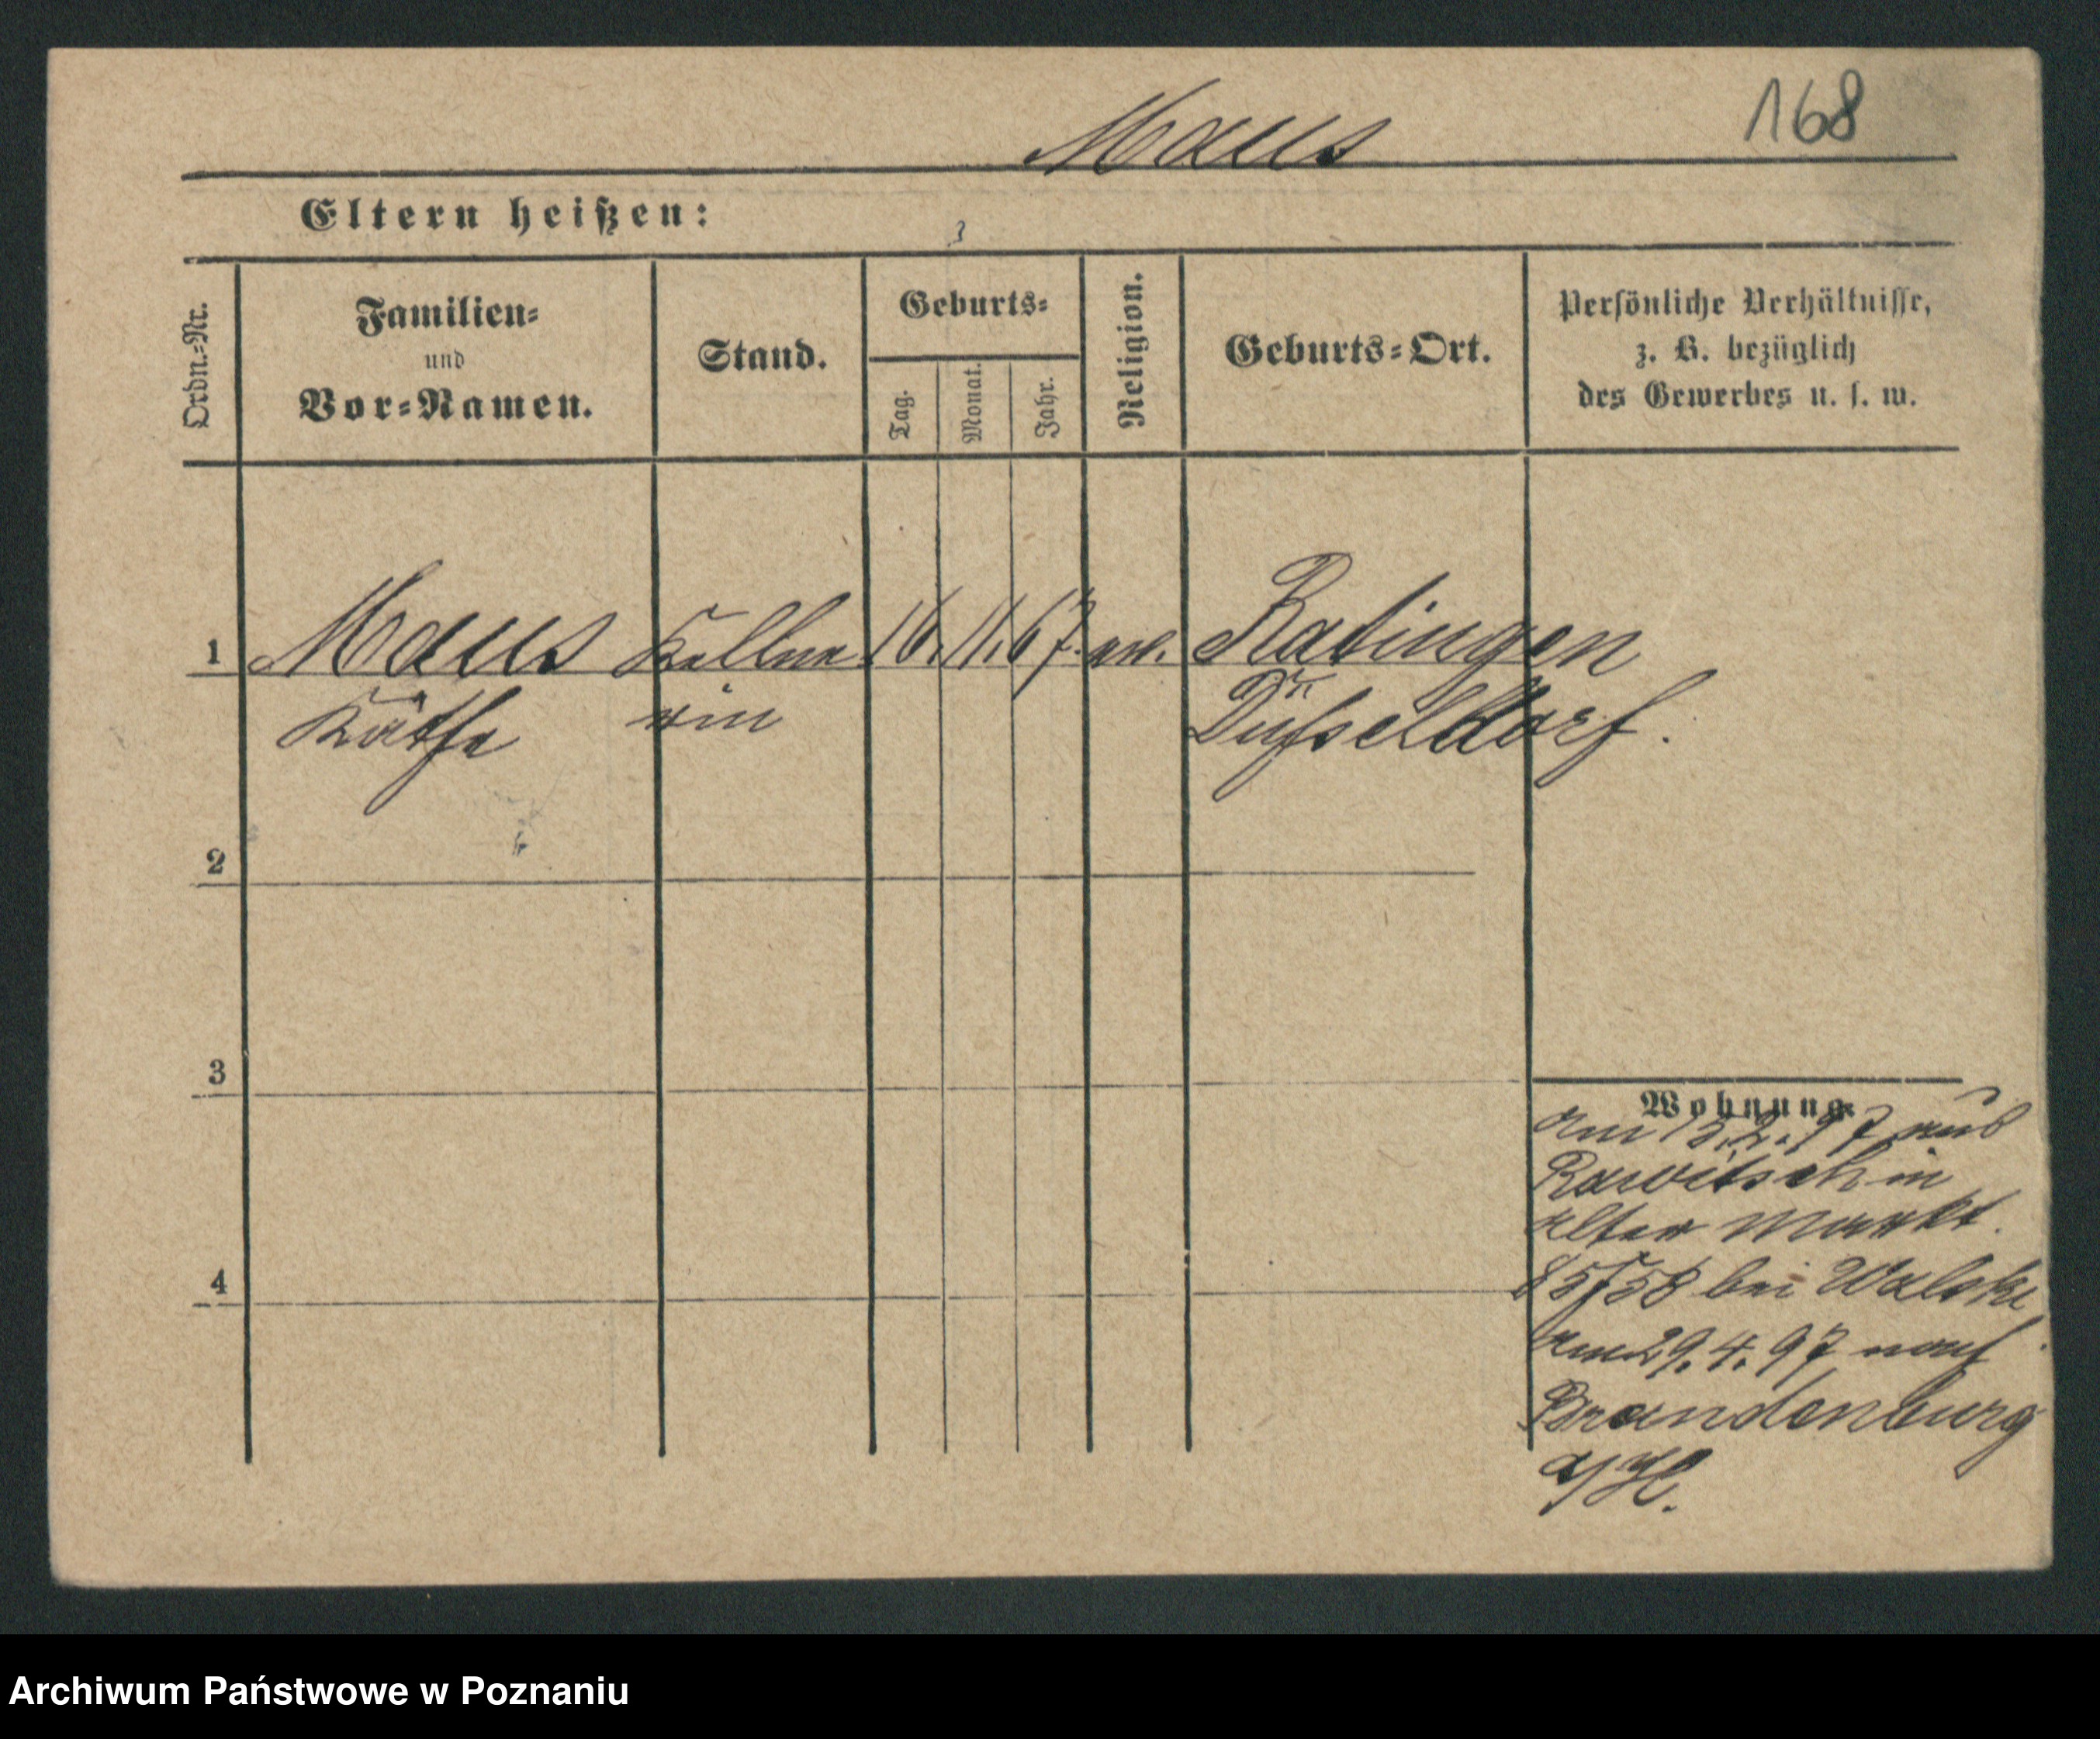 168
Maus
Eltern heißen:
Ordn.-Nr.
Familien-
und
Vor-Namen.
Stand.
Geburts-
Tag.
Monat.
Jahr.
Religion.
Geburts-Ort.
Persönliche Verhältnisse,
z. B. bezüglich
des Gewerbes u. s. w.
1 Maus Kellne 16. 11. 67. Ratingen
Käthe rin Düsseldorf.
2
3
4
Wohnung
am 13.2.97 aus
Rawitsch in
Alter Markt.
bei
am 29.4.97 nach
Brandenburg
a/H.
Archiwum Państwowe w Poznaniu